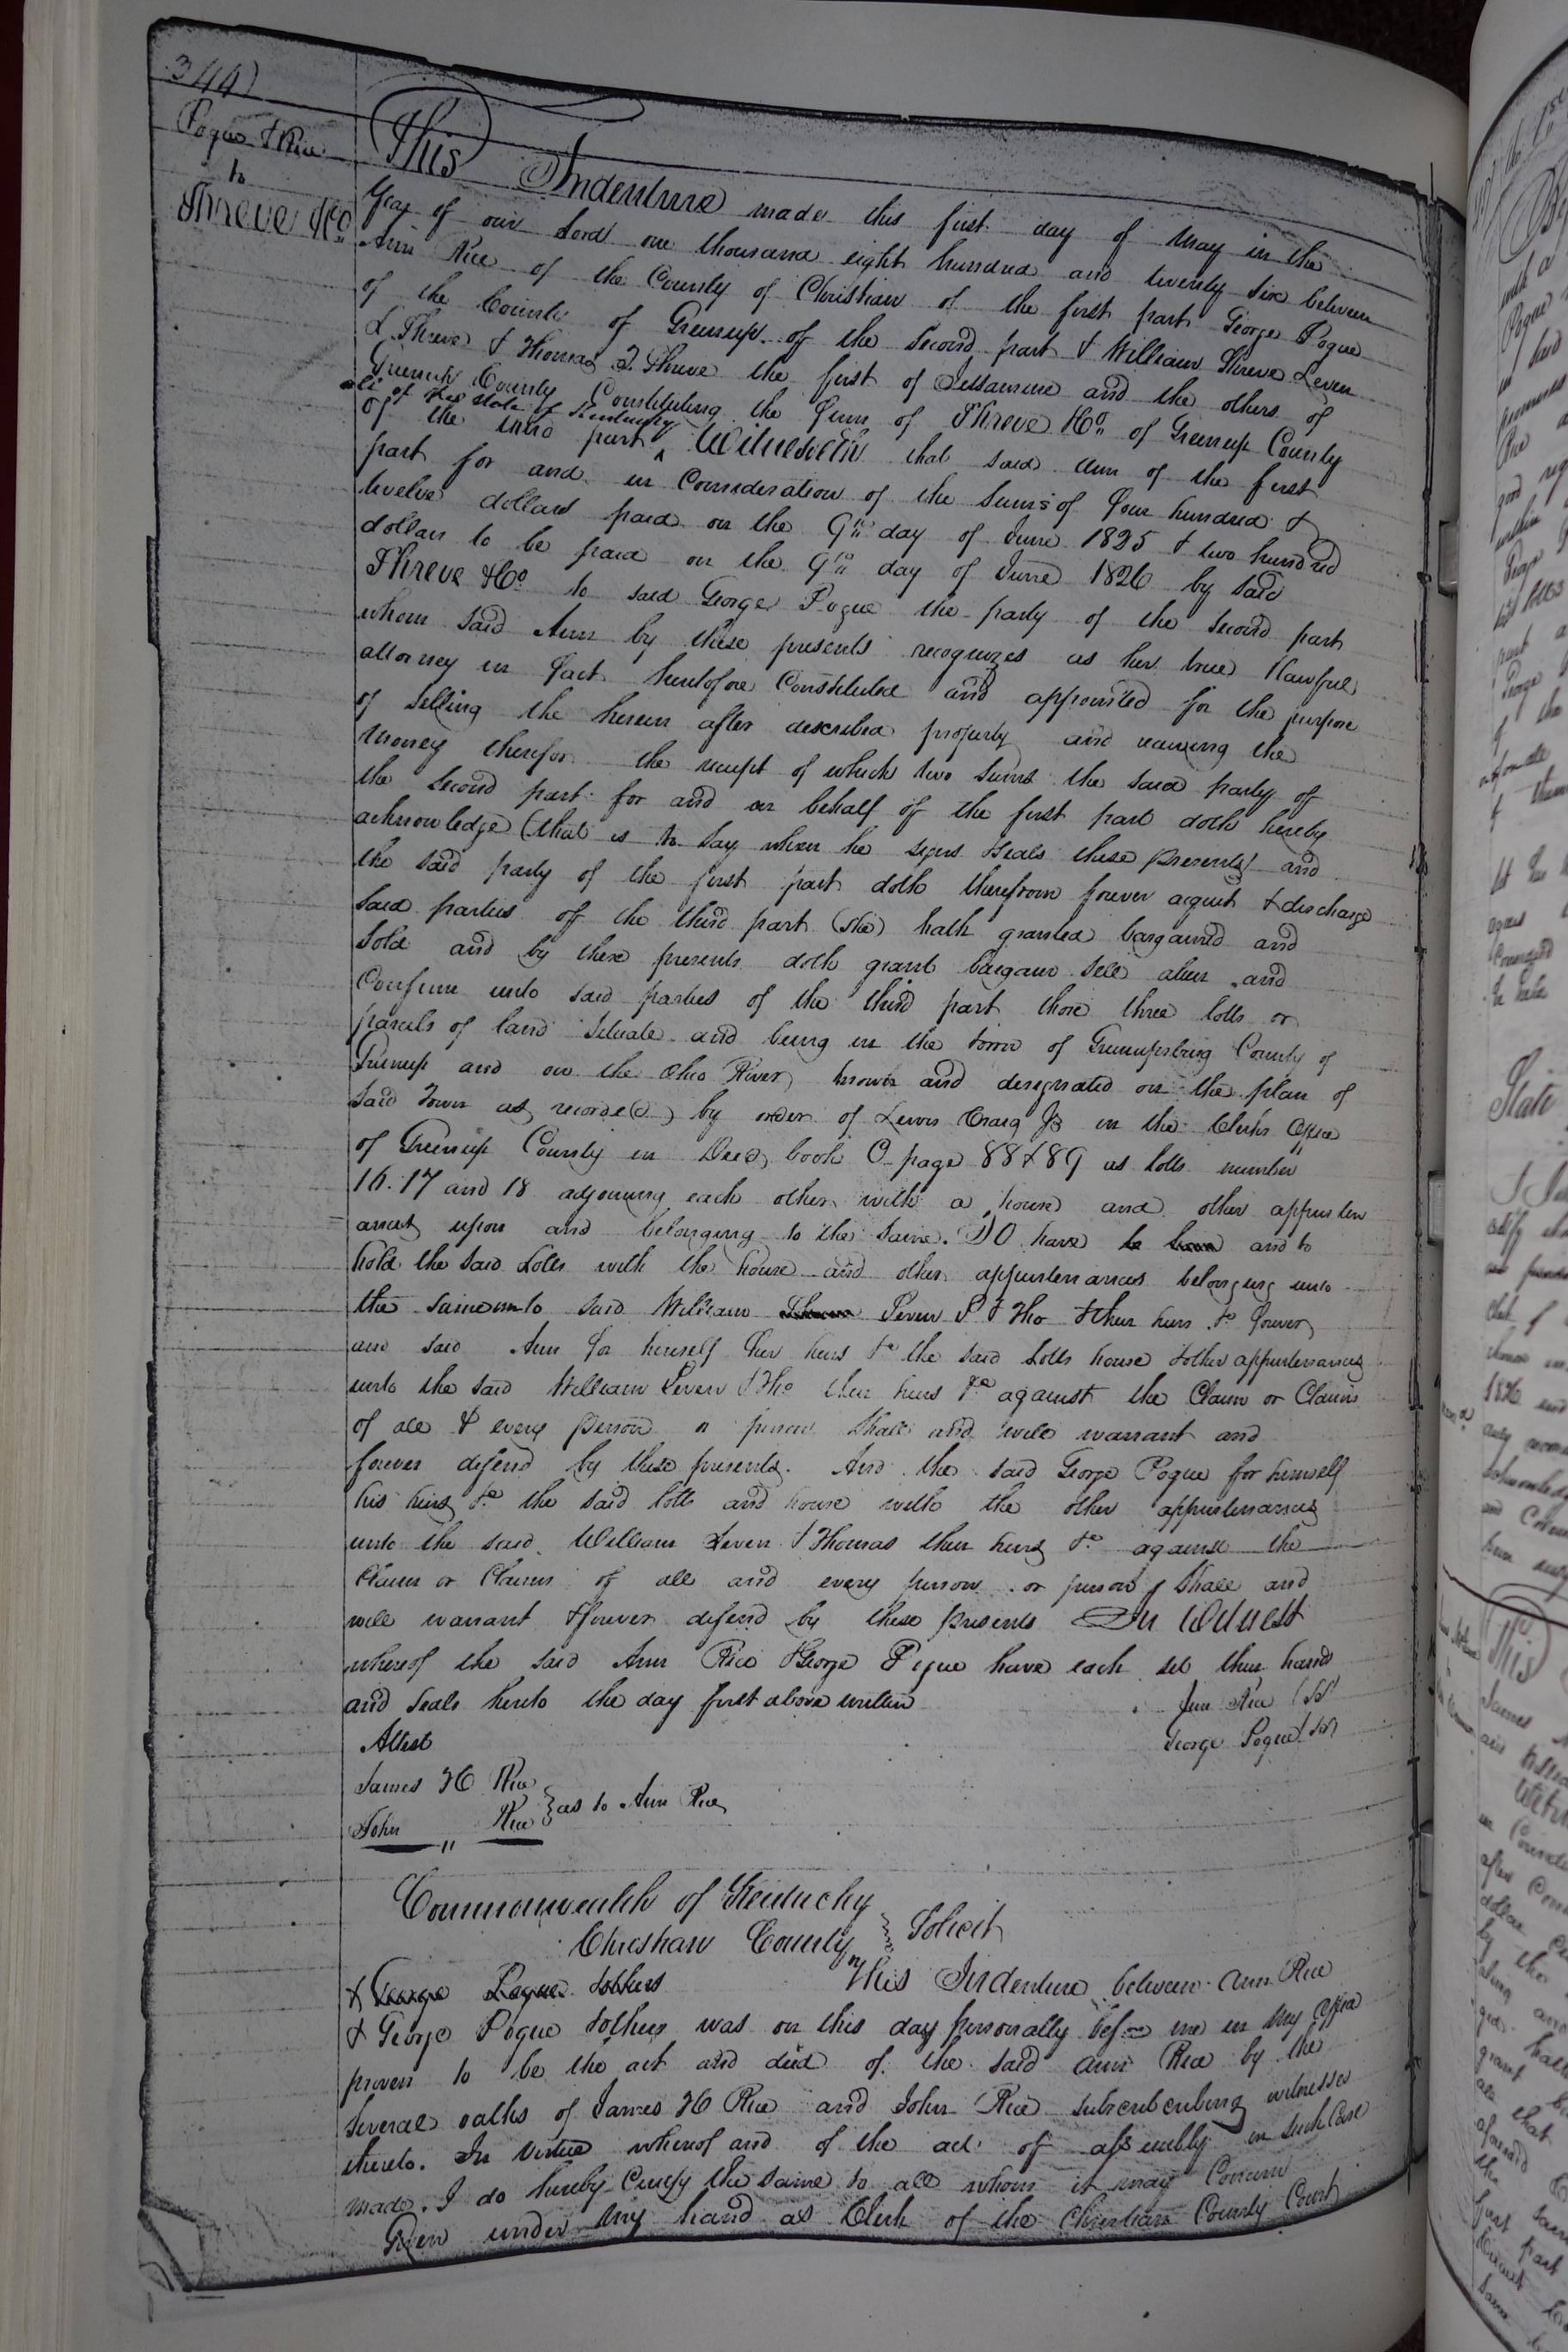 344)
Pogue & Rice
to
Shreve & Co
This Indenture made this first day of May in the
Year of our Lord one thousand eight hundred and twenty Six between
Ann Rice of the County of Christian of the first part George Pogue
of the County of Greenup of the Second part & William Shreve Leven
L. Shreve & Thomas T. Shreve the first of Jessamine and the others of
Greenup County Constituting the firm of Shreve & Co. of Greenup County
all of the state of Kentucky
of the third part ^ Witnesseth that said Ann of the first
part for and in Consideration of the Sums of four hundred &
twelve dollars paid on the 9th day of June 1825 & two hundred
dollars to be paid on the 9th day of June 1826 by said
Shreve & Co to said George Pogue the party of the Second part
whom said Ann by these presents recognizes as her true & lawful
attorney in fact heretofore Constituted and appointed for the purpose
of selling the herein after described property and receiving the
money therefor the receipt of which two sums the said party of
the Second part for and on behalf of the first part doth hereby
acknowledge (that is to Say when he signs & seals these presents) and
the said party of the first part doth therefrom forever acquit & discharge
said parties of the third part (she) hath granted bargained and
Sold and by these presents doth grant bargain sell alien and
Confirm unto said parties of the third part those three lotts or
parcels of land Situate and being in the town of Greenupsburg County of
Greenup and on the Ohio River known and designated on the plan of
said Town as recorde(d) by order of Lewis Craig Jr in the Clerks Office
of Greenup County in Deed book C page 88 & 89 as lotts number
16. 17 and 18 adjoining each other with a house and other appurten
ances upon and belonging to the same. TO have to have and to
hold the said Lotts with the house and other appurtenances belonging unto
the same unto said William Leven L & Tho & their heirs &c forever
and said Ann for herself her heirs &c the said Lotts house & other appurtenances
unto the said William Leven & Tho their heirs &c against the Claim or Claims
of all & every person or persons shall and will warrant and
forever defend by these presents. And the said George Pogue for himself
his heirs &c the said lotts and house with the other appurtenances
unto the said William Leven & Thomas their heirs &c against the
Claim or Claims of all and every person or persons shall and
will warrant & forever defend by these presents In Witness
whereof the said Ann Rice & George Pogue have each set their hands
and seals hereto the day first above written
Ann Rice (Sd)
Attest
George Pogue (Sd)
James H Rice
John " Rice } as to Ann Rice
Commonwealth of Kentucky
Christian County } To wit
This Indenture between Ann Rice
& George Pogue & others
& George Pogue & others was on this day personally before me in my Office
proven to be the act and deed of the said Ann Rice by the
several oaths of James H Rice and John Rice subscribeing witnesses
thereto. In virtue whereof and of the act of assembly in such Case
made. I do hereby Certify the same to all whom it may Concern
Given under my hand as Clerk of the Christian County Court